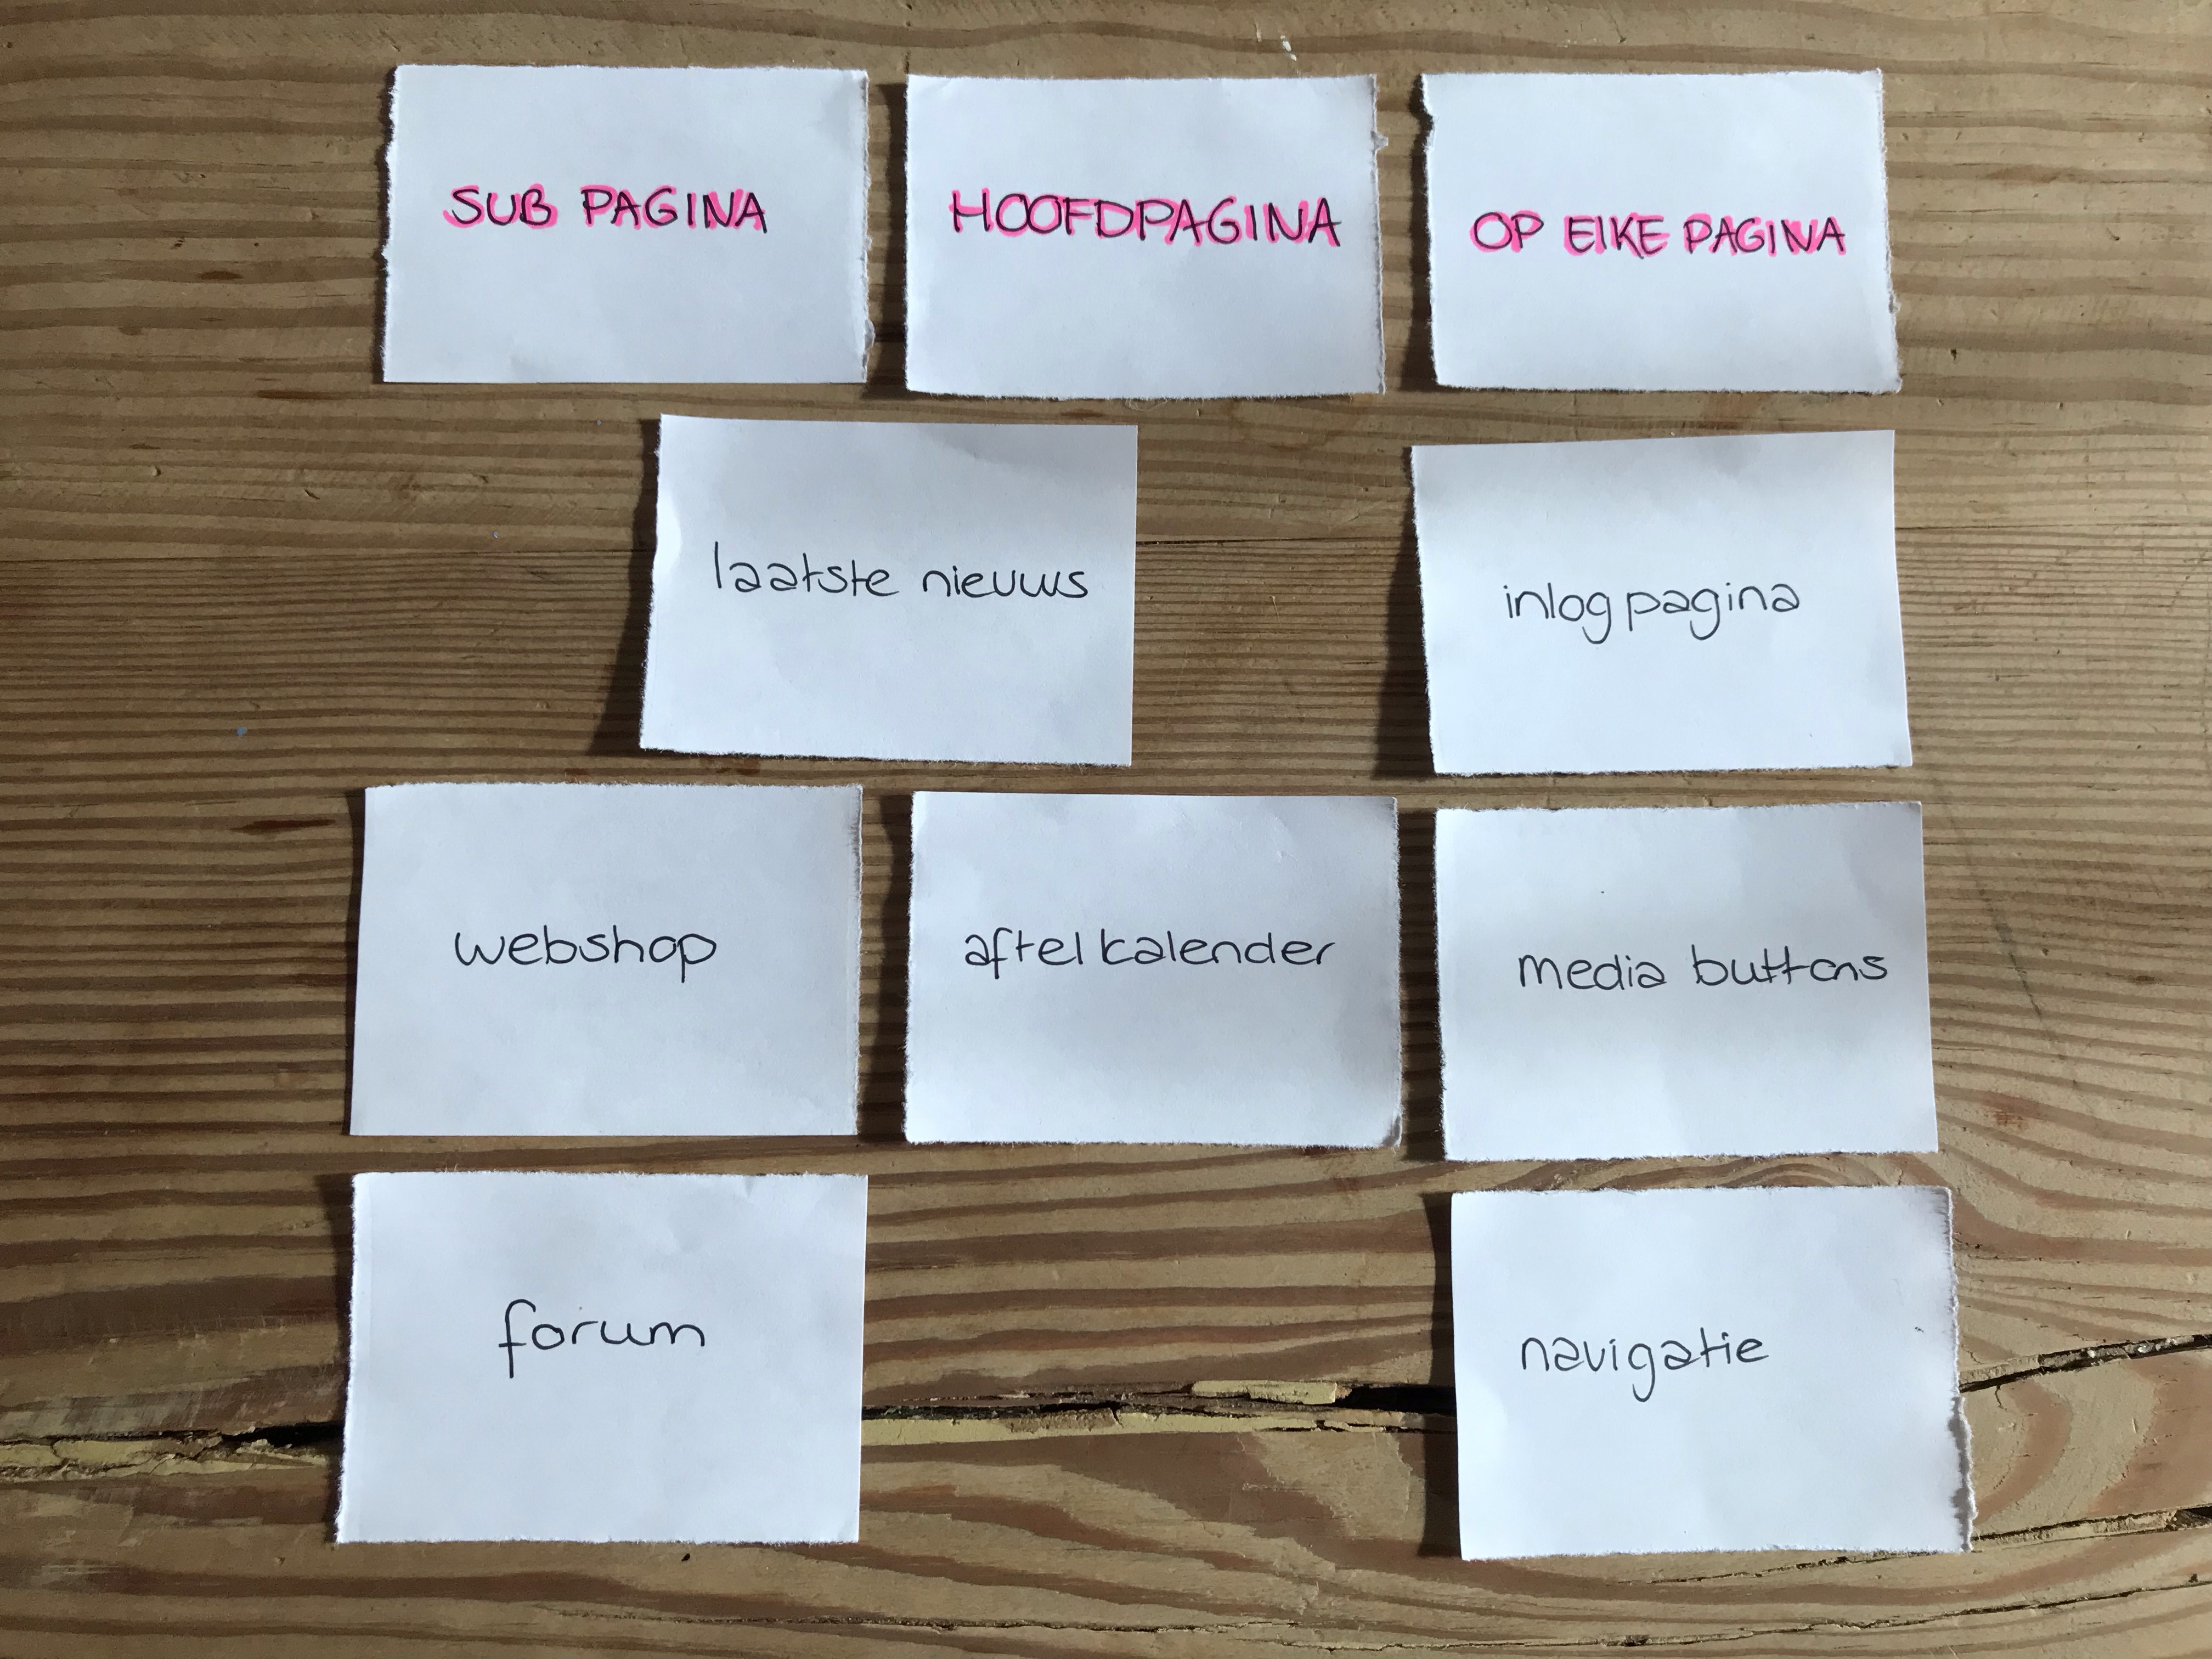 SUB PAGINA
HOOFDPAGINA
OP ElKE PAGINA
laatste nieuws
inlogpagina
webshop
aftelkalender
media buttons
forum
navigatie